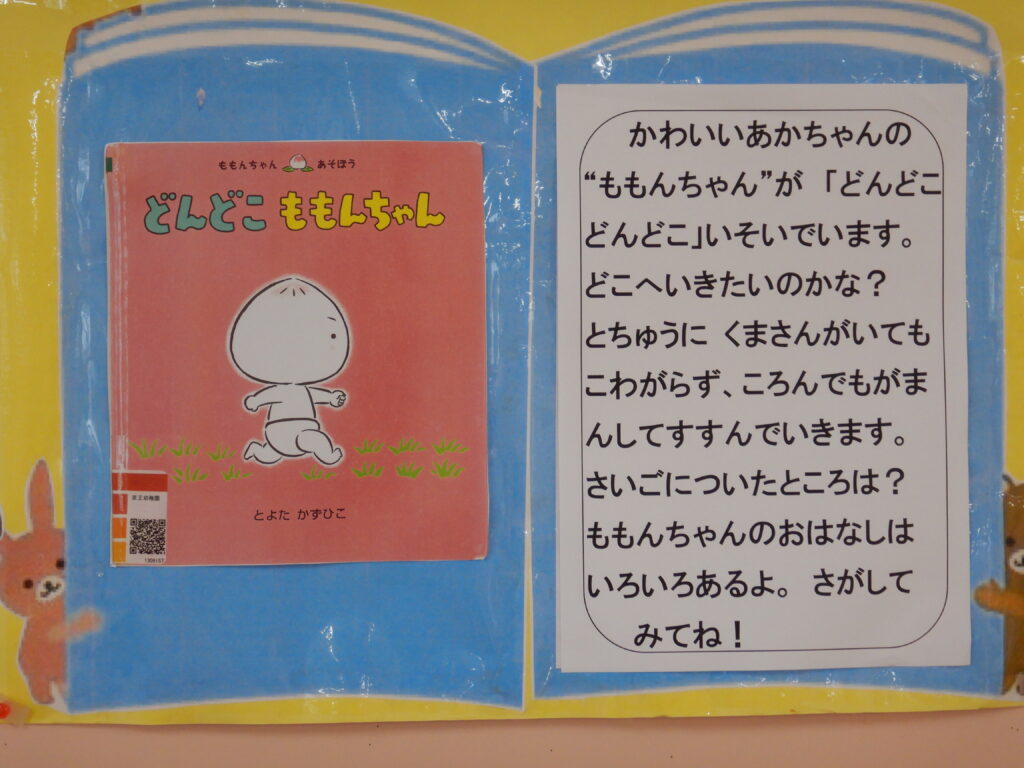 ももんちゃん あそぼう
どんどこ ももんちゃん
とよた かずひこ
かわいいあかちゃんの
“ももんちゃん”が 「どんどこ
どんどこ」いそいでいます。
どこへいきたいのかな？
とちゅうに くまさんがいても
こわがらず、ころんでもがま
んしてすすんでいきます。
さいごについたところは？
ももんちゃんのおはなしは
いろいろあるよ。 さがして
みてね！